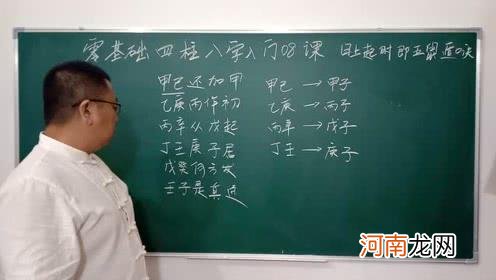 零基础四柱八字入门08课 日上起时即五鼠遁口诀
甲己还加甲
乙庚丙作初
丙辛从戊起
丁壬庚子居
戊癸何方发
壬子是真途
甲己→甲子
乙庚→丙子
丙辛→戊子
丁壬→庚子
河南龙网